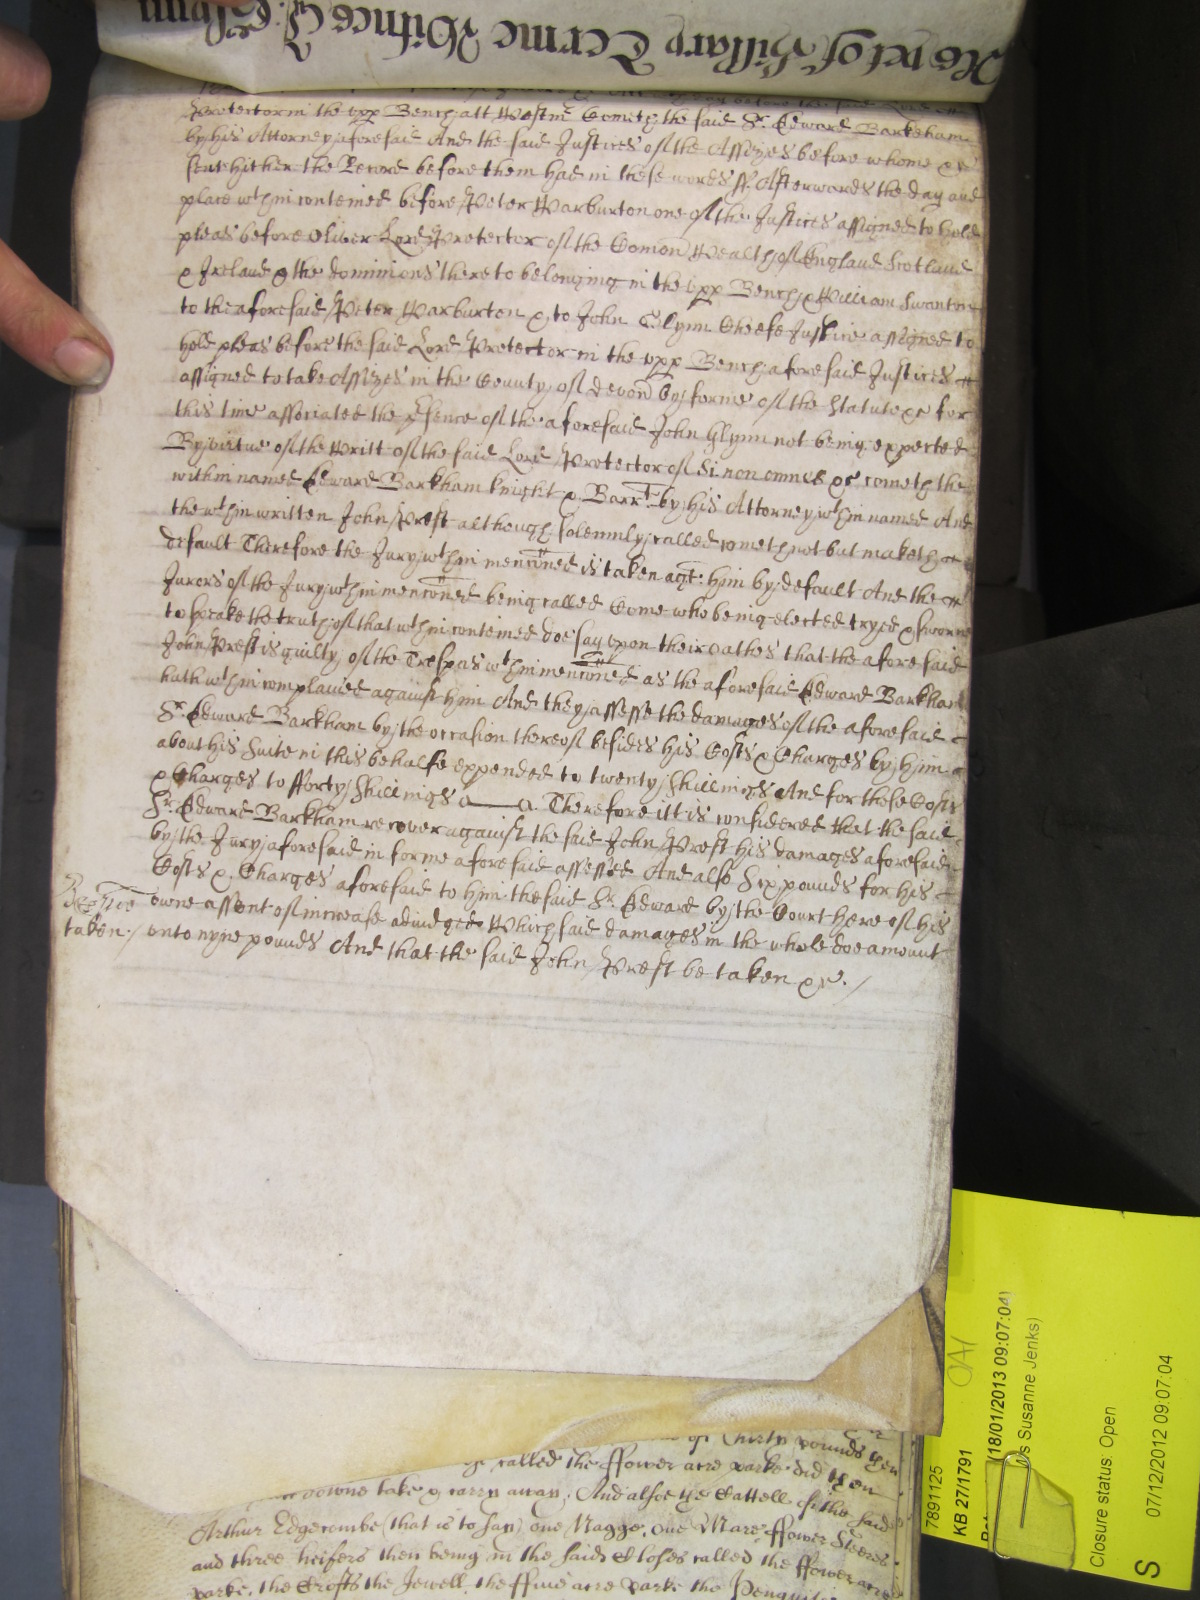 Rest of Hillary Terme Witnes J: Glynn
Protector in the upp Bench att Westmr Cometh the said Sr. Edward Barkeham
by his Attorney aforesaid And the said Justices of the Assizes before whome &c
sent hither the Record before them had in these words ss. Afterwards the day and
place wthin conteined before Peter Warburton one of the Justices assigned to hold
pleas before Oliver Lord Protector of the Comon Wealth of England Scotland
& Ireland & the dominions thereto belonging in the upp Bench & William Swanton
to the aforesaid Peter Warburton & to John Glynn Cheefe Justice assigned to
hold pleas before the said Lord Protector in the upp Bench aforesaid Justices
assigned to take Assizes in the County of devon by forme of the Statute &c for
this time associated the psence of the aforesaid John Glynn not being expected
By virtue of the Writt of the said Lord Protector of Si non omnes &c cometh the
within named Edward Barkham knight & Barrt. by his Attorney wthin named And
the wthin written John Prest although solemnly called cometh not but maketh
default Therefore the Jury wthin mencõned is taken agt. him by default And the
Jurors of the Jury wthin mencõned being called Come who being elected tryed & sworne
to speake the truth of that wthin conteined doe say upon their oathes that the aforesaid
John Prest is guilty of the Trespas wthin mencõned as the aforesaid Edward Barkham
hath wthin complained against him And they assesse the damages of the aforesaid
Sr. Edward Barkham by the occasion thereof besides his Costs & Charges by him
about his Suite in this behalfe expended to twenty shillings And for those Costs
& Charges to fforty shillings Therefore itt is considered that the said
Sr. Edward Barkham recover against the said John Prest his damages aforesaid
by the Jury aforesaid in forme aforesaid assessed And also Six pounds for his
Costs & Charges aforesaid to him the said Sr. Edward by the Court here of his
owne assent of increase adiudged Which said damages in the whole doe amount
taken:/ unto nyne pounds And that the said John Prest be taken &c./
of Thirty pounds then
called the ffower acre parke did then
downe take & carry away, And alsoe the Cattell of the said
Arthur Edgcombe (that is to say) one Nagge, one Mare, ffower Steeres
and three heifers then being in the said Closes called the ffower acre
parke, the Crofts the Jewell, the ffive acre parke the
7891125
KB 27/1791
(18/01/2013 09:07:04)
s Susanne Jenks)
Closure status: Open
S 07/12/2012 09:07:04